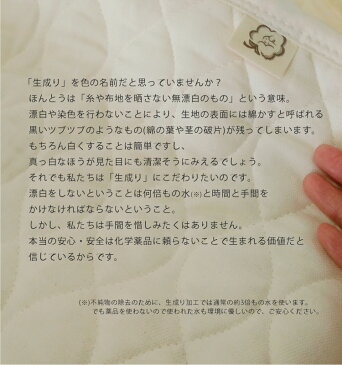 「生成り」を色の名前だと思っていませんか？
ほんとうは「糸や布地を晒さない無漂白のもの」という意味。
漂白や染色を行わないことにより、生地の表面には綿かすと呼ばれる
黒いツブツブのようなもの(綿の葉や茎の破片)が残ってしまいます。
もちろん白くすることは簡単ですし、
真っ白なほうが見た目にも清潔そうにみえるでしょう。
それでも私たちは「生成り」にこだわりたいのです。
漂白をしないということは何倍もの水(※)と時間と手間を
かけなければならないということ。
しかし、私たちは手間を惜しみたくはありません。
本当の安心・安全は化学薬品に頼らないことで生まれる価値だと
信じているからです。
(※)不純物の除去のために、生成り加工では通常の約3倍もの水を使います。
でも薬品を使わないので使われた水も環境に優しいので、ご安心ください。